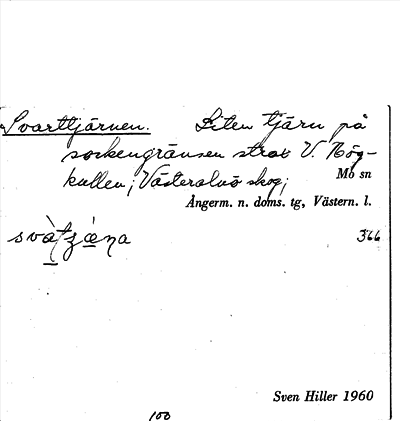 Svarttjärnen. Liten tjärn på
sockengränsen strax V. Hög-
kullen; Västeralnö skog;
Mo sn
Ångerm. n. doms. tg, Västern. l.
svàtzäṇa 366
Sven Hiller 1960
100